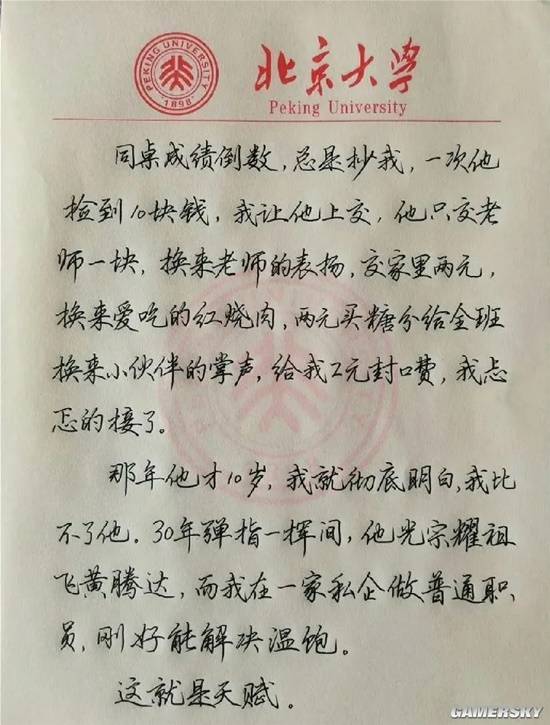 PEKING UNIVERSITY
1898
北京大学
Peking University
同桌成绩倒数,总是抄我,一次他
捡到10块钱,我让他上交,他只交老
师一块,换来老师的表扬,交家里两元,
换来爱吃的红烧肉,两元买糖分给全班
换来小伙伴的掌声,给我2元封口费,我忐
忑的接了。
那年他才10岁,我就彻底明白,我比
不了他.30年弹指一挥间,他光宗耀祖
飞黄腾达,而我在一家私企做普通职
员,刚好能解决温饱。
这就是天赋。
GAMERSKY